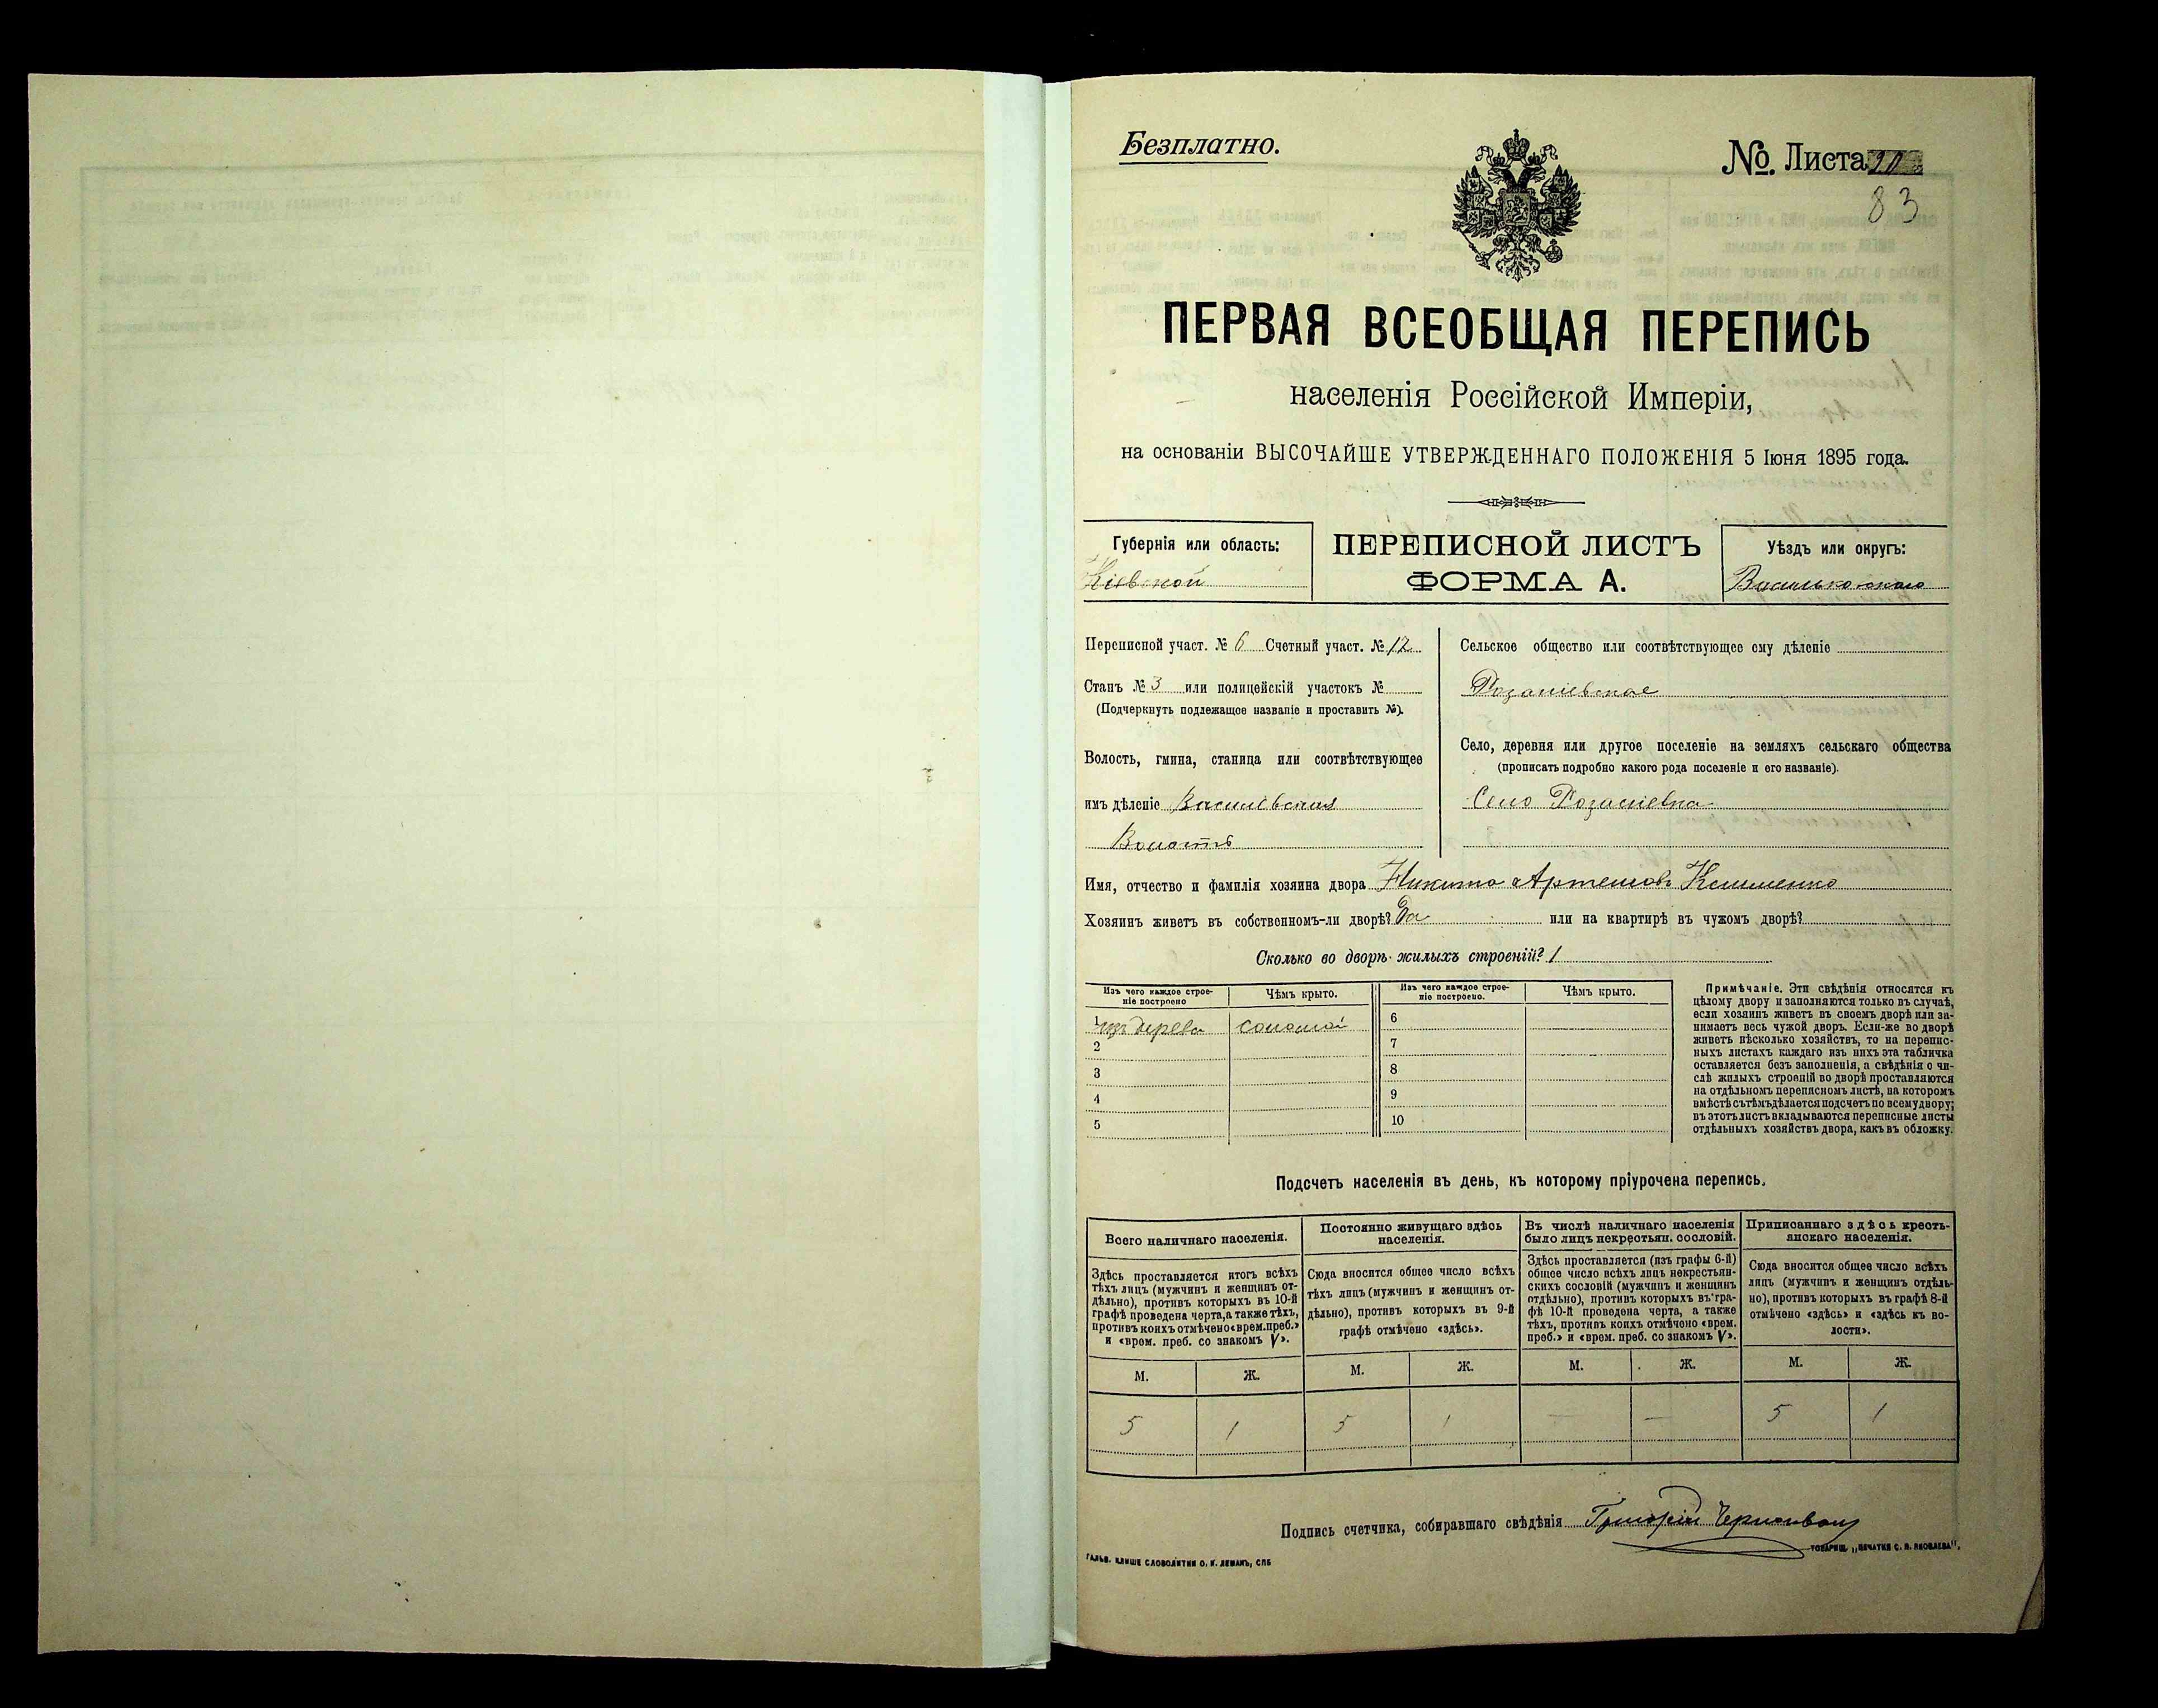 Безплатно.
№. Листа
83
ПЕРВАЯ ВСЕОБЩАЯ ПЕРЕПИСЬ
населенія Россійской Имперіи,
на основаніи ВЫСОЧАЙШЕ УТВЕРЖДЕННАГО ПОЛОЖЕНІЯ 5 Іюня 1895 года.
Губернія или область:
Кіевской
ПЕРЕПИСНОЙ ЛИСТЪ
ФОРМА А.
Уѣздъ или округъ:
Васильковскаго
Переписной участ. № 6 Счетный участ. № 12
Станъ № 3 или полицейскій участокъ №
(Подчеркнуть подлежащее названіе и проставить №).
Волость, гмина, станица или соотвѣтствующее
имъ дѣленіе
Волость
Сельское общество или соотвѣтствующее ему дѣленіе
Село, деревня или другое поселеніе на земляхъ сельскаго общества
(прописать подробно какого рода поселеніе и его названіе).
Село
Имя, отчество и фамилія хозяина двора Никита Артемовъ Клименко
Хозяинъ живетъ въ собственномъ-ли дворѣ? Да или на квартирѣ въ чужомъ дворѣ?
Сколько во дворѣ жилыхъ строеній? 1
Изъ чего каждое строе-
ніе построено
Чѣмъ крыто.
Изъ чего каждое строе-
ніе построено.
Чѣмъ крыто.
1 изъ дерева соломой 6
2 7
3 8
4 9
5 10
Примѣчаніе. Эти свѣдѣнія относятся къ
цѣлому двору и заполняются только въ случаѣ,
если хозяинъ живетъ въ своемъ дворѣ или за-
нимаетъ весь чужой дворъ. Если-же во дворѣ
живетъ нѣсколько хозяйствъ, то на перепис-
ныхъ листахъ каждаго изъ нихъ эта табличка
оставляется безъ заполненія, а свѣдѣнія о чи-
слѣ жилыхъ строеній во дворѣ проставляются
на отдѣльномъ переписномъ листѣ, на которомъ
вмѣстѣ съ тѣмъ дѣлается подсчетъ по всему двору;
въ этотъ листъ вкладываются переписные листы
отдѣльныхъ хозяйствъ двора, какъ въ обложку.
Подсчетъ населенія въ день, къ которому пріурочена перепись.
Всего наличнаго населенія.
Здѣсь проставляется итогъ всѣхъ
тѣхъ лицъ (мужчинъ и женщинъ от-
дѣльно), противъ которыхъ въ 10-й
графѣ проведена черта, а также тѣхъ,
противъ коихъ отмѣчено «врем. преб.»
и «врем. преб. со знакомъ V».
Постоянно живущаго здѣсь
населенія.
Сюда вносится общее число всѣхъ
тѣхъ лицъ (мужчинъ и женщинъ от-
дѣльно), противъ которыхъ въ 9-й
графѣ отмѣчено «здѣсь».
Въ числѣ наличнаго населенія
было лицъ некрестьян. сословій.
Здѣсь проставляется (изъ графы 6-й)
общее число всѣхъ лицъ некрестьян-
скихъ сословій (мужчинъ и женщинъ
отдѣльно), противъ которыхъ въ гра-
фѣ 10-й проведена черта, а также
тѣхъ, противъ коихъ отмѣчено «врем.
преб.» и «врем. преб. со знакомъ V».
Приписаннаго здѣсь кресть-
янскаго населенія.
Сюда вносится общее число всѣхъ
лицъ (мужчинъ и женщинъ отдѣль-
но), противъ которыхъ въ графѣ 8-й
отмѣчено «здѣсь» и «здѣсь къ во-
лости».
М. Ж. М. Ж. М. Ж. М. Ж.
5 1 5 1 — — 5 1
Подпись счетчика, собиравшаго свѣдѣнія Григорій
ГАЛЬВ. КЛИШЕ СЛОВОЛИТНИ О. И. ЛЕМАНЪ, СПБ
ТОВАРИЩ. „ПЕЧАТНЯ С. П. ЯКОВЛЕВА".